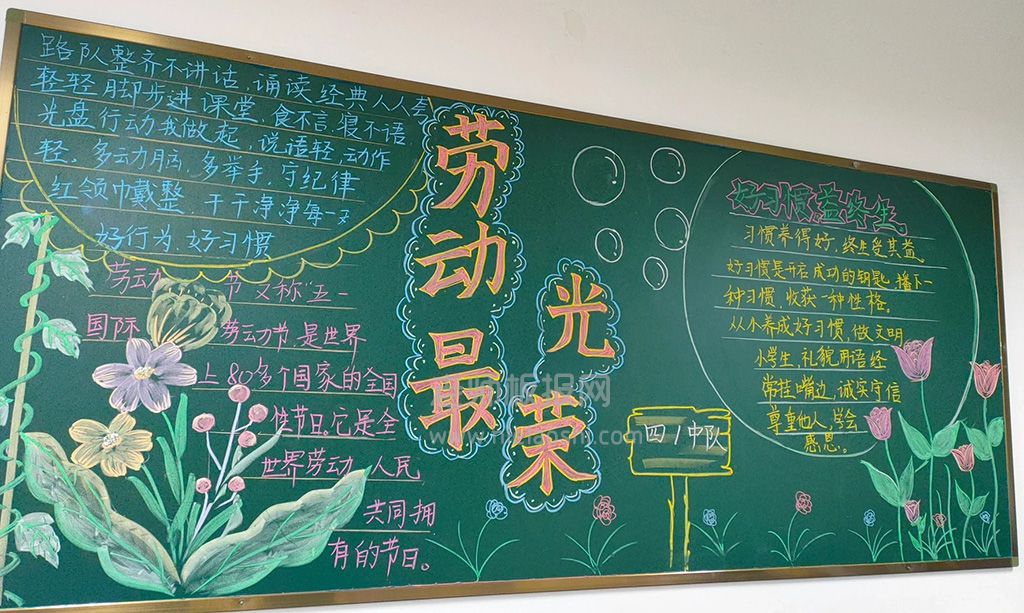 路队整齐不讲话,诵读经典人人夸
轻轻脚步进课堂,食不言,寝不语
光盘行动我做起,说语轻,动作
轻,多动脑,多举手,守纪律
红领巾戴整,干干净净每一天
好行为,好习惯
劳动 节又称"五一
国际 劳动节,是世界
上80多个国家的全国
性节日。它是全
世界劳动 人民
共同拥
有的节日。
劳动最
光荣
四1中队
好习惯益终生
习惯养得好,终生受其益。
好习惯是开启成功的钥匙,播下一
种习惯,收获一种性格。
从小养成好习惯,做文明
小学生,礼貌用语经
常挂嘴边,诚实守信
尊重他人,学会
感恩。